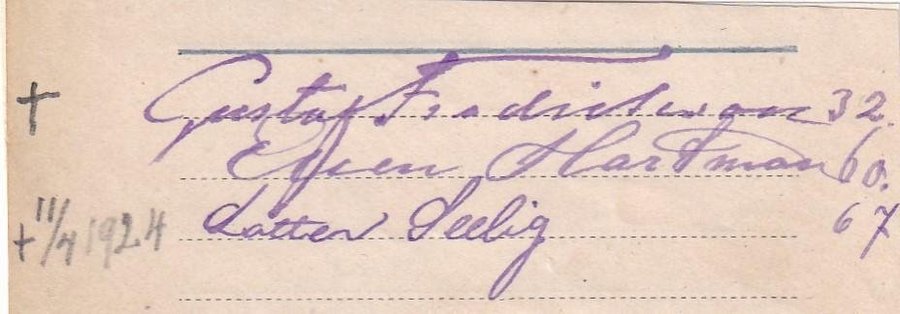 † Gustaf Fredrickson 32.
Ellen Hartman 60.
+ 11/4 1924 Lotten Seelig 67